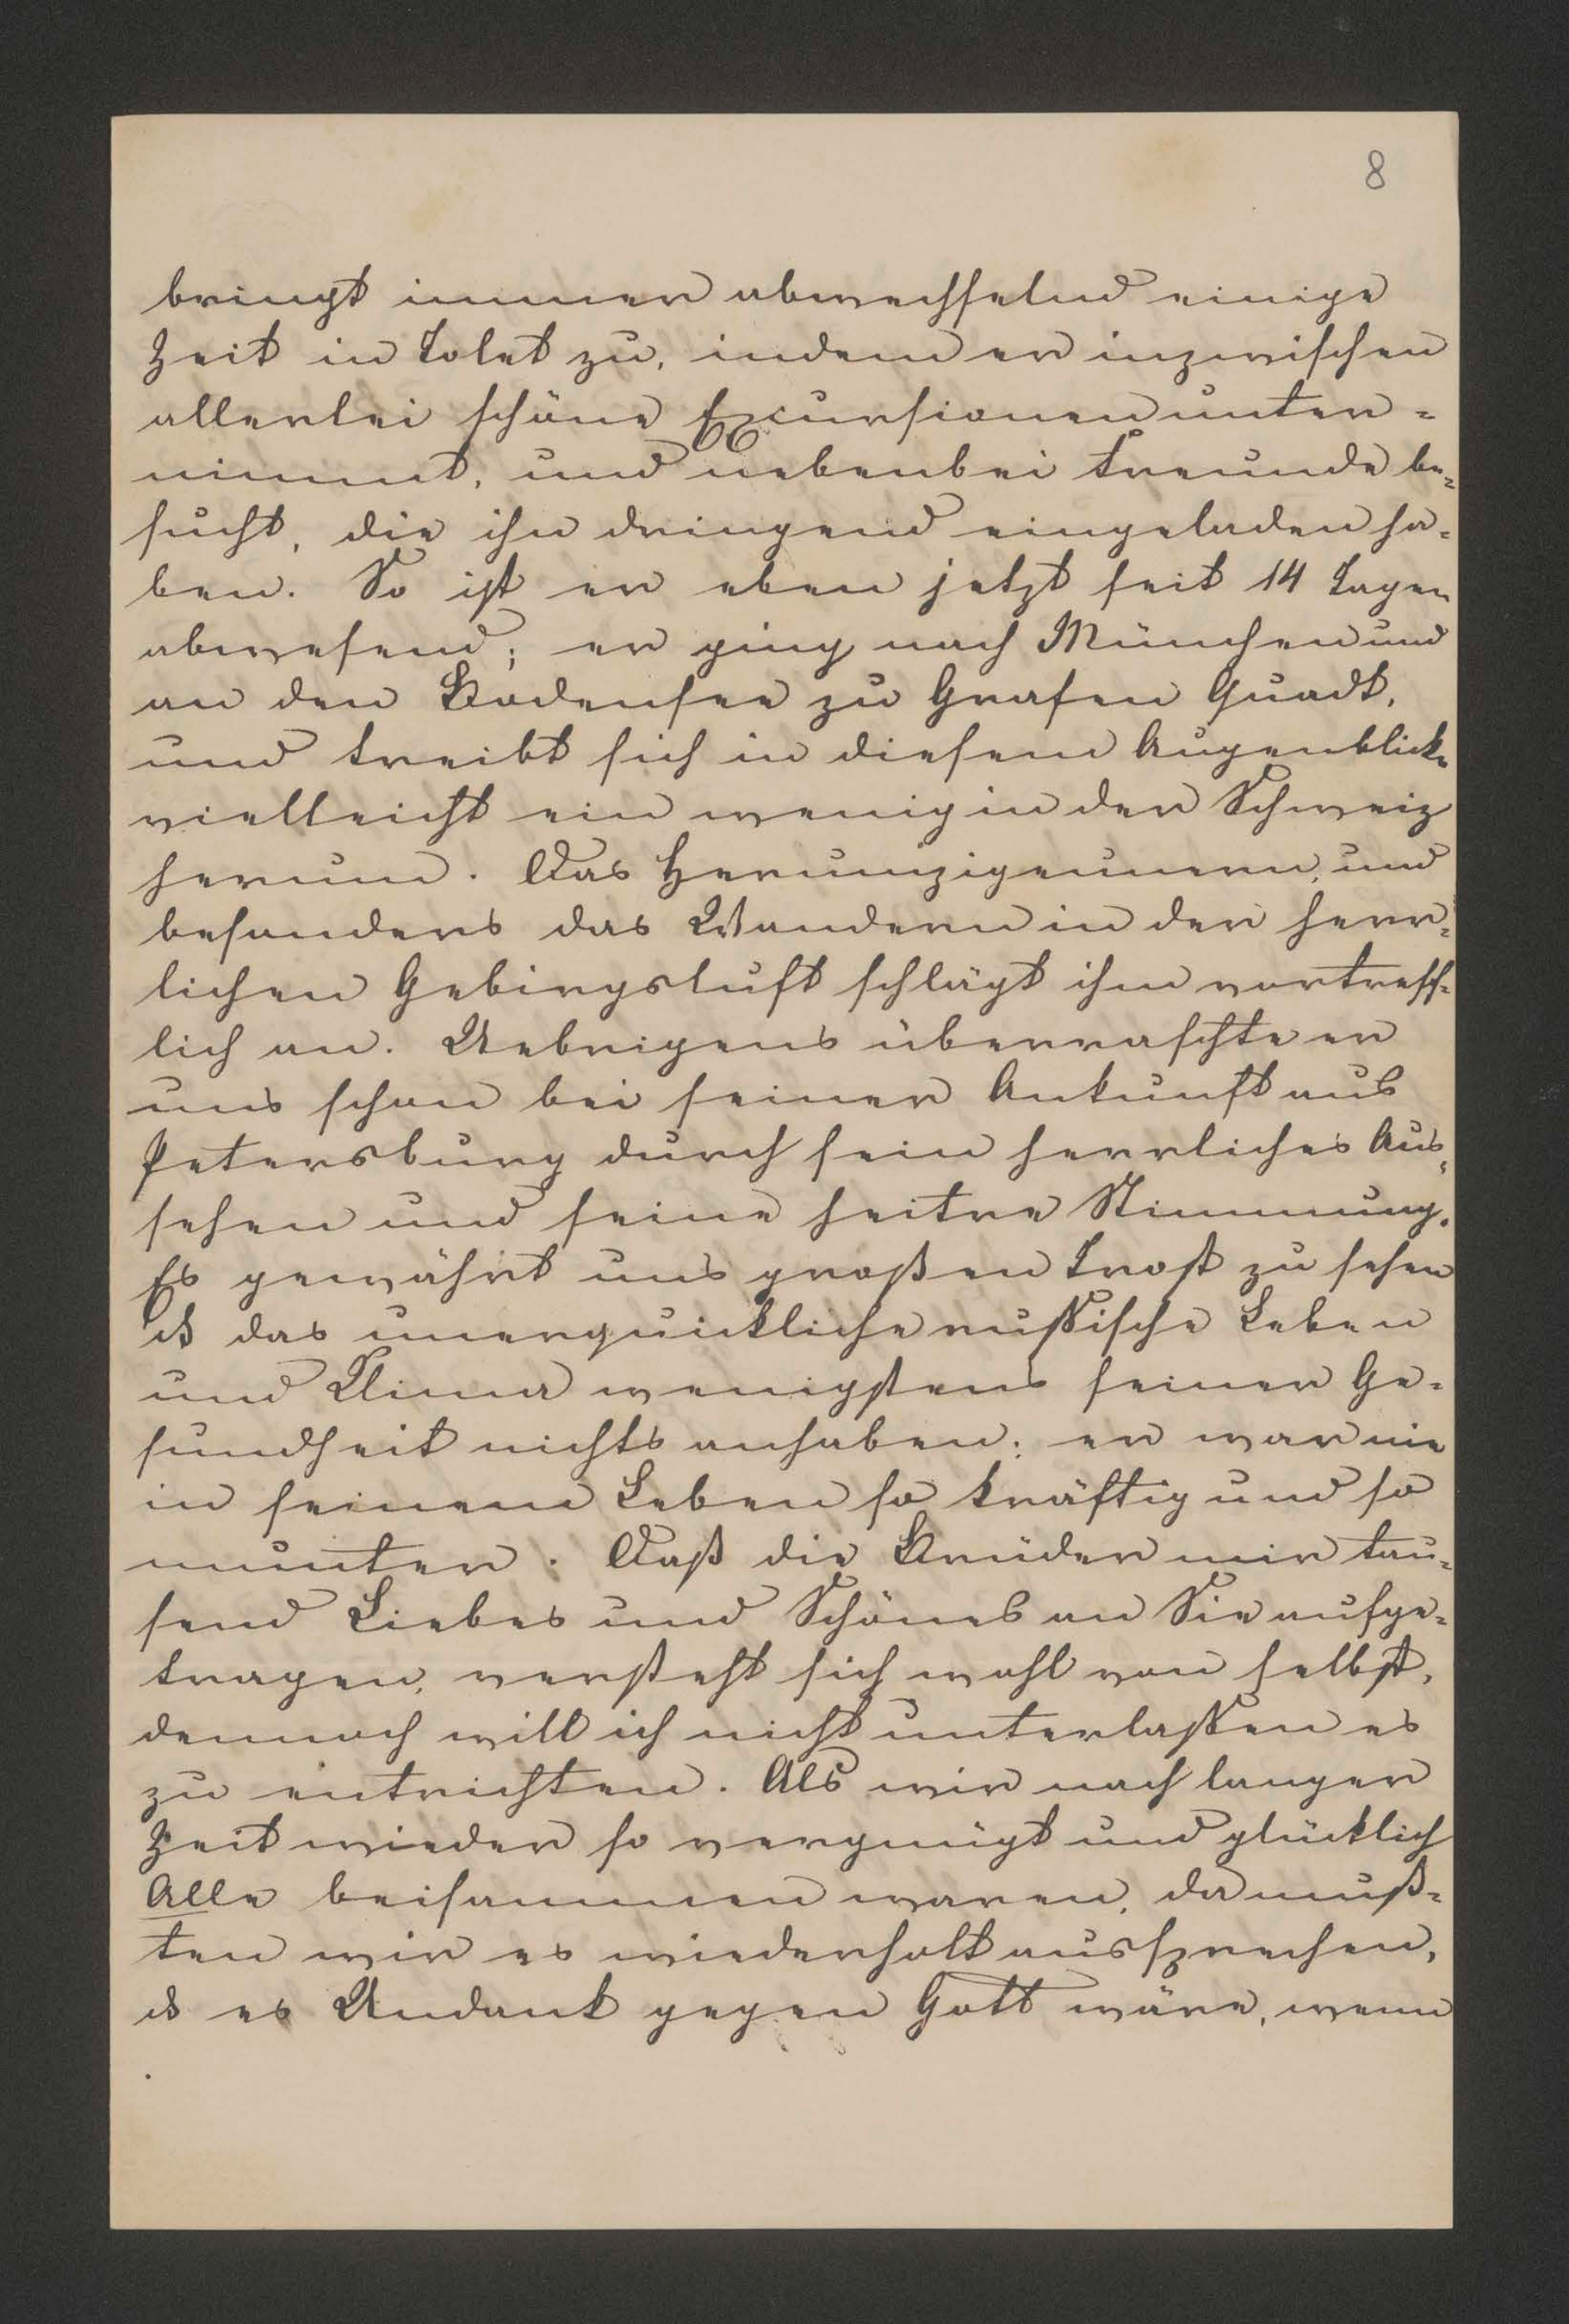 8
bringt immer abwechselnd einige
Zeit in Tolet zu, indem er inzwischen
allerlei schöne Excursionen unter=
nimmt, und nebenbei Freunde be=
sucht, die ihn dringend eingeladen ha=
ben. So ist er eben jetzt seit 14 Tagen
abwesend; er ging nach München und
an den Bodensee zu Grafen Quadt,
und treibt sich in diesem Augenblicke
vielleicht ein wenig in der Schweiz
herum. Das Herumzigeunern, und
besonders das Wandern in der herr=
lichen Gebirgsluft schlägt ihm vortreff=
lich an. Uebrigens überraschte er
uns schon bei seiner Ankunft aus
Petersburg durch sein herrliches Aus=
sehen und seine heitre Stimmung.
Es gewährt uns großen Trost zu sehen
ds das unerquickliche russische Leben
und Klima wenigstens seiner Ge=
sundheit nichts anhaben; er war nie
in seinem Leben so kräftig und so
munter. Daß die Brüder mir tau=
send Liebes und Schönes an Sie aufge=
tragen, versteht sich wohl von selbst,
dennoch will ich nicht unterlassen es
zu entrichten. Als wir nach langer
Zeit wieder so vergnügt und glücklich
Alle beisammen waren, da muß=
ten wir es wiederholt aussprechen,
ds es Undank gegen Gott wäre, wenn